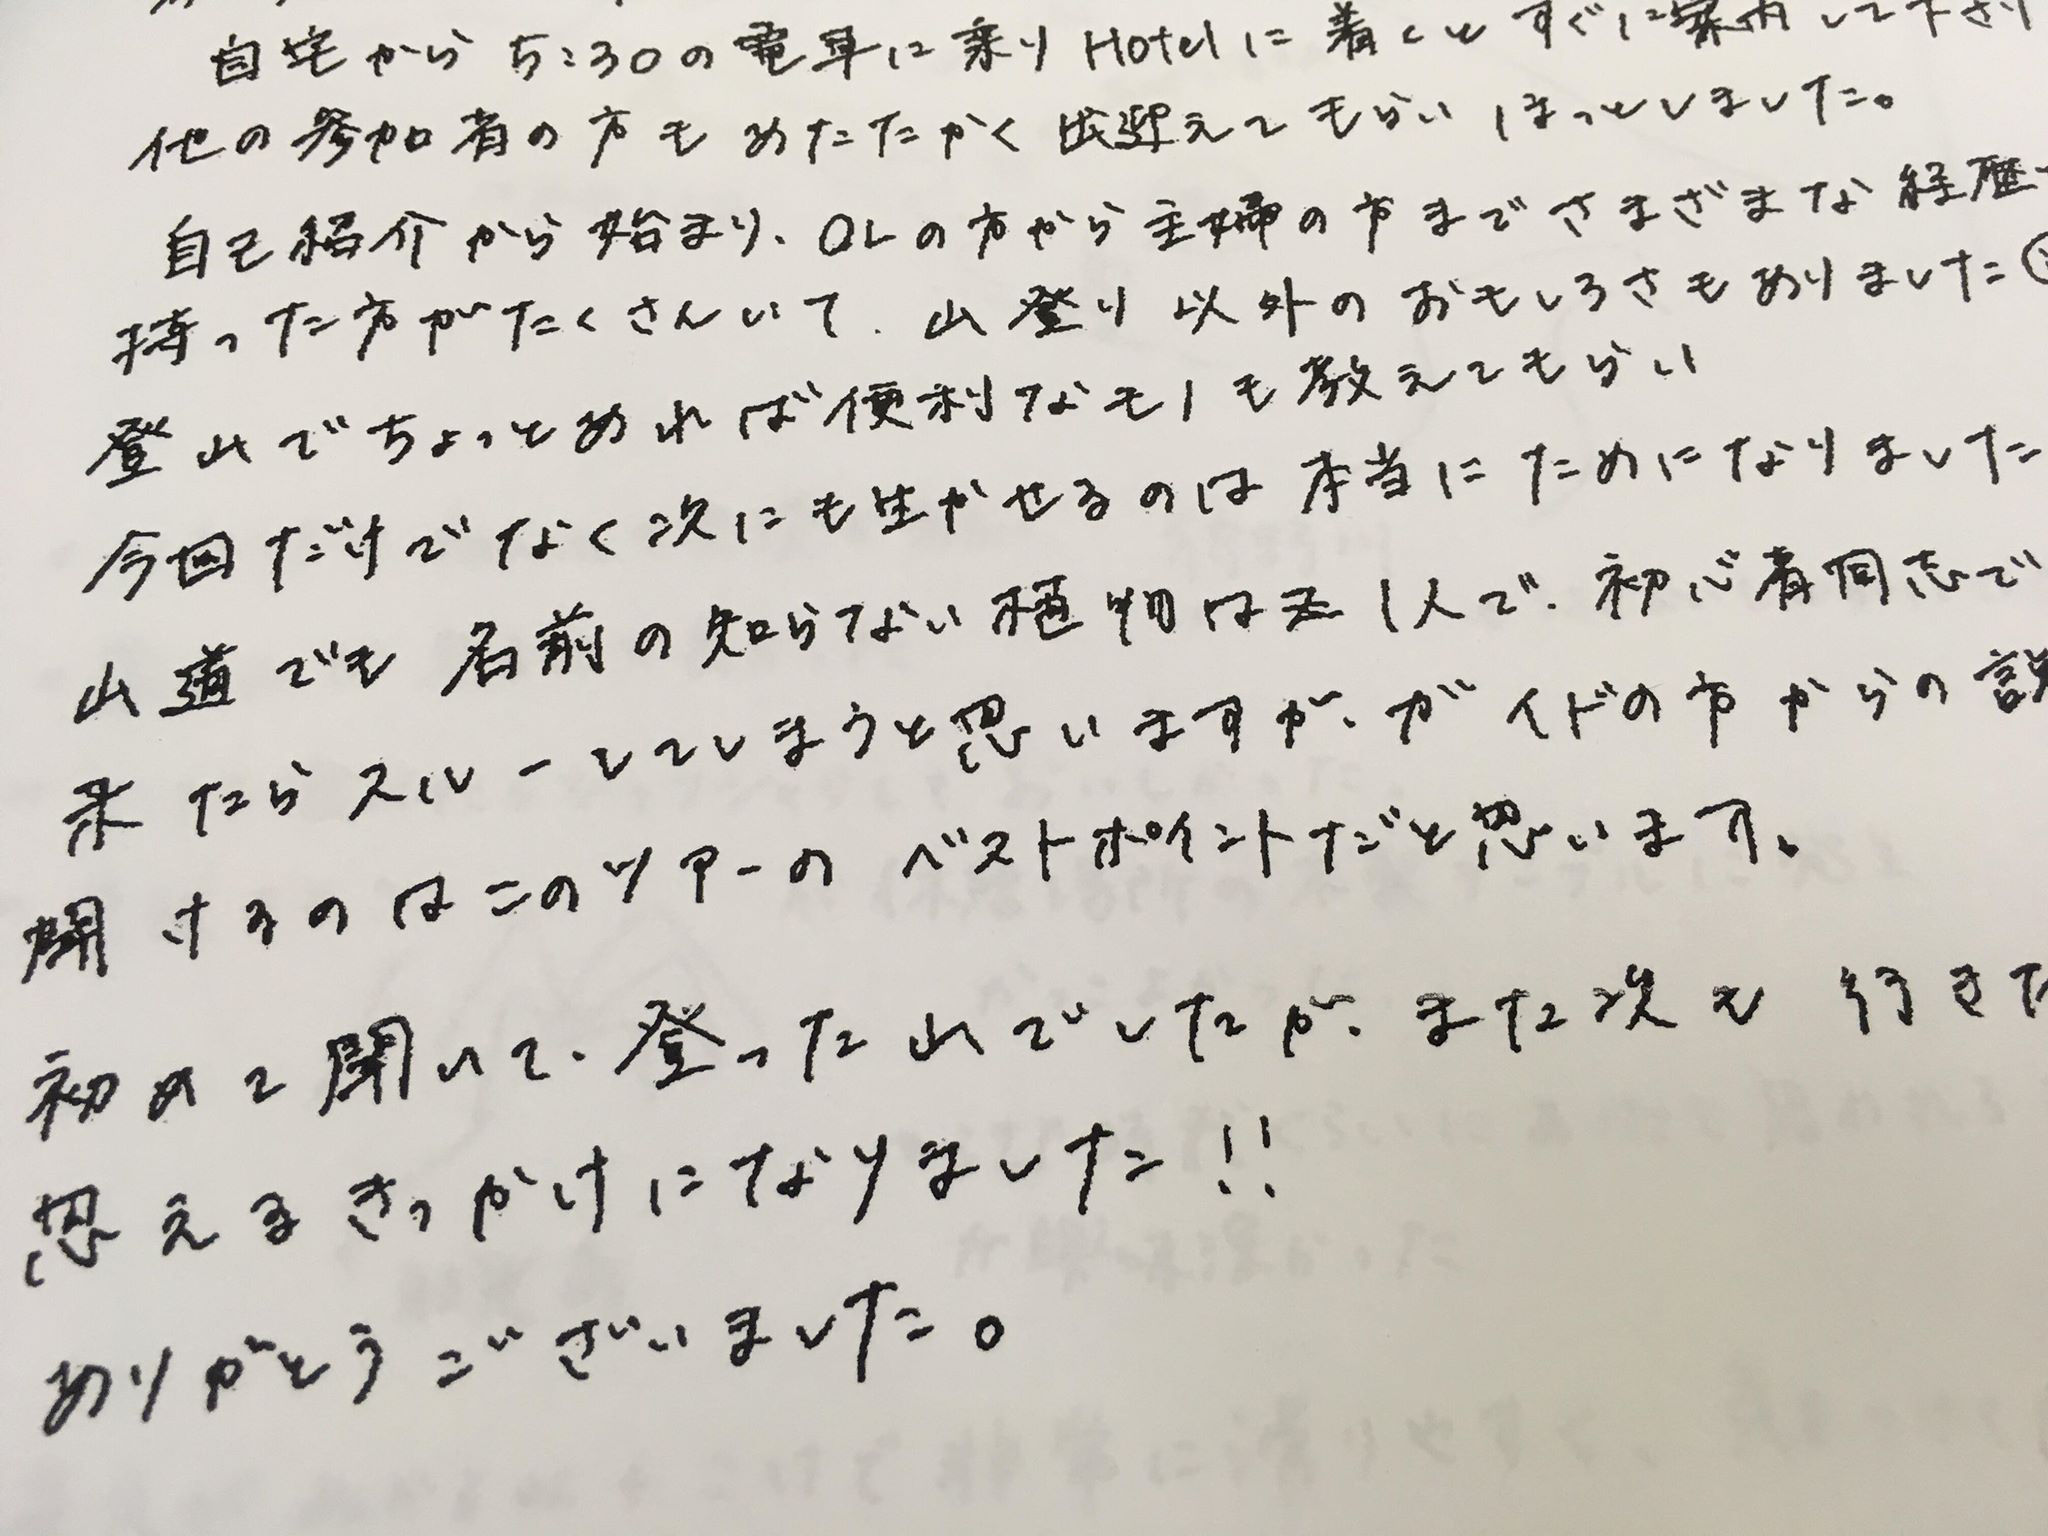 自宅から5:30の電車に乗りHotelに着くとすぐに案内して下さり
他の参加者の方もあたたかく出迎えてもらいほっとしました。
自己紹介から始まり、OLの方から主婦の方までさまざまな経歴
持った方がたくさんいて、山登り以外のおもしろさもありました
登山でちょっとあれば便利なモノも教えてもらい
今回だけでなく次にも生かせるのは本当にためになりました
山道でも名前の知らない植物は 1人で、初心者同志で
来たらスルーしてしまうと思いますが、ガイドの方からの説
聞けるのはこのツアーのベストポイントだと思います。
初めて聞いて、登った山でしたが、また次も行きた
思えるきっかけになりました!!
ありがとうございました。